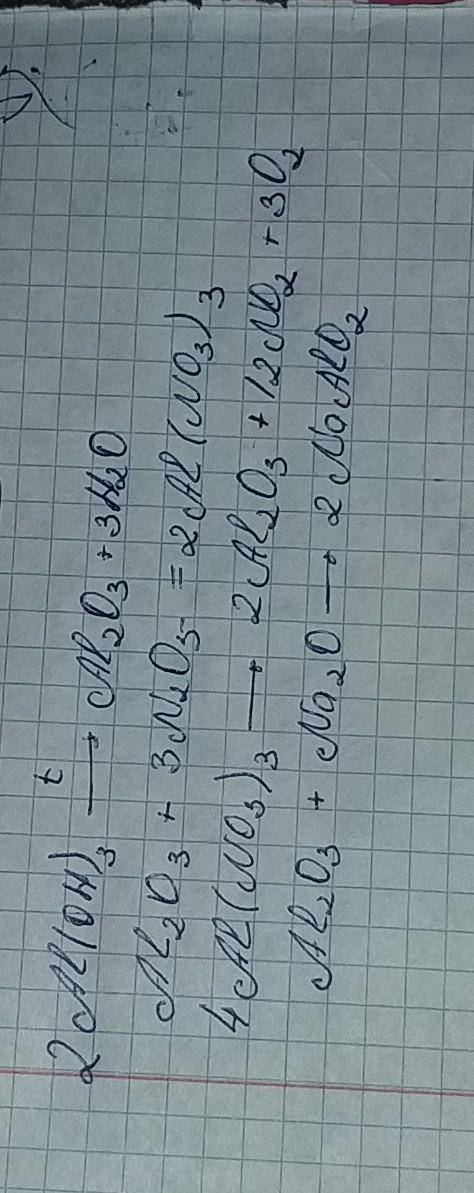 2Al(OH)₃ —t→ Al₂O₃ + 3H₂O
Al₂O₃ + 3N₂O₅ = 2Al(NO₃)₃
4Al(NO₃)₃ → 2Al₂O₃ + 12NO₂ + 3O₂
Al₂O₃ + Na₂O → 2NaAlO₂